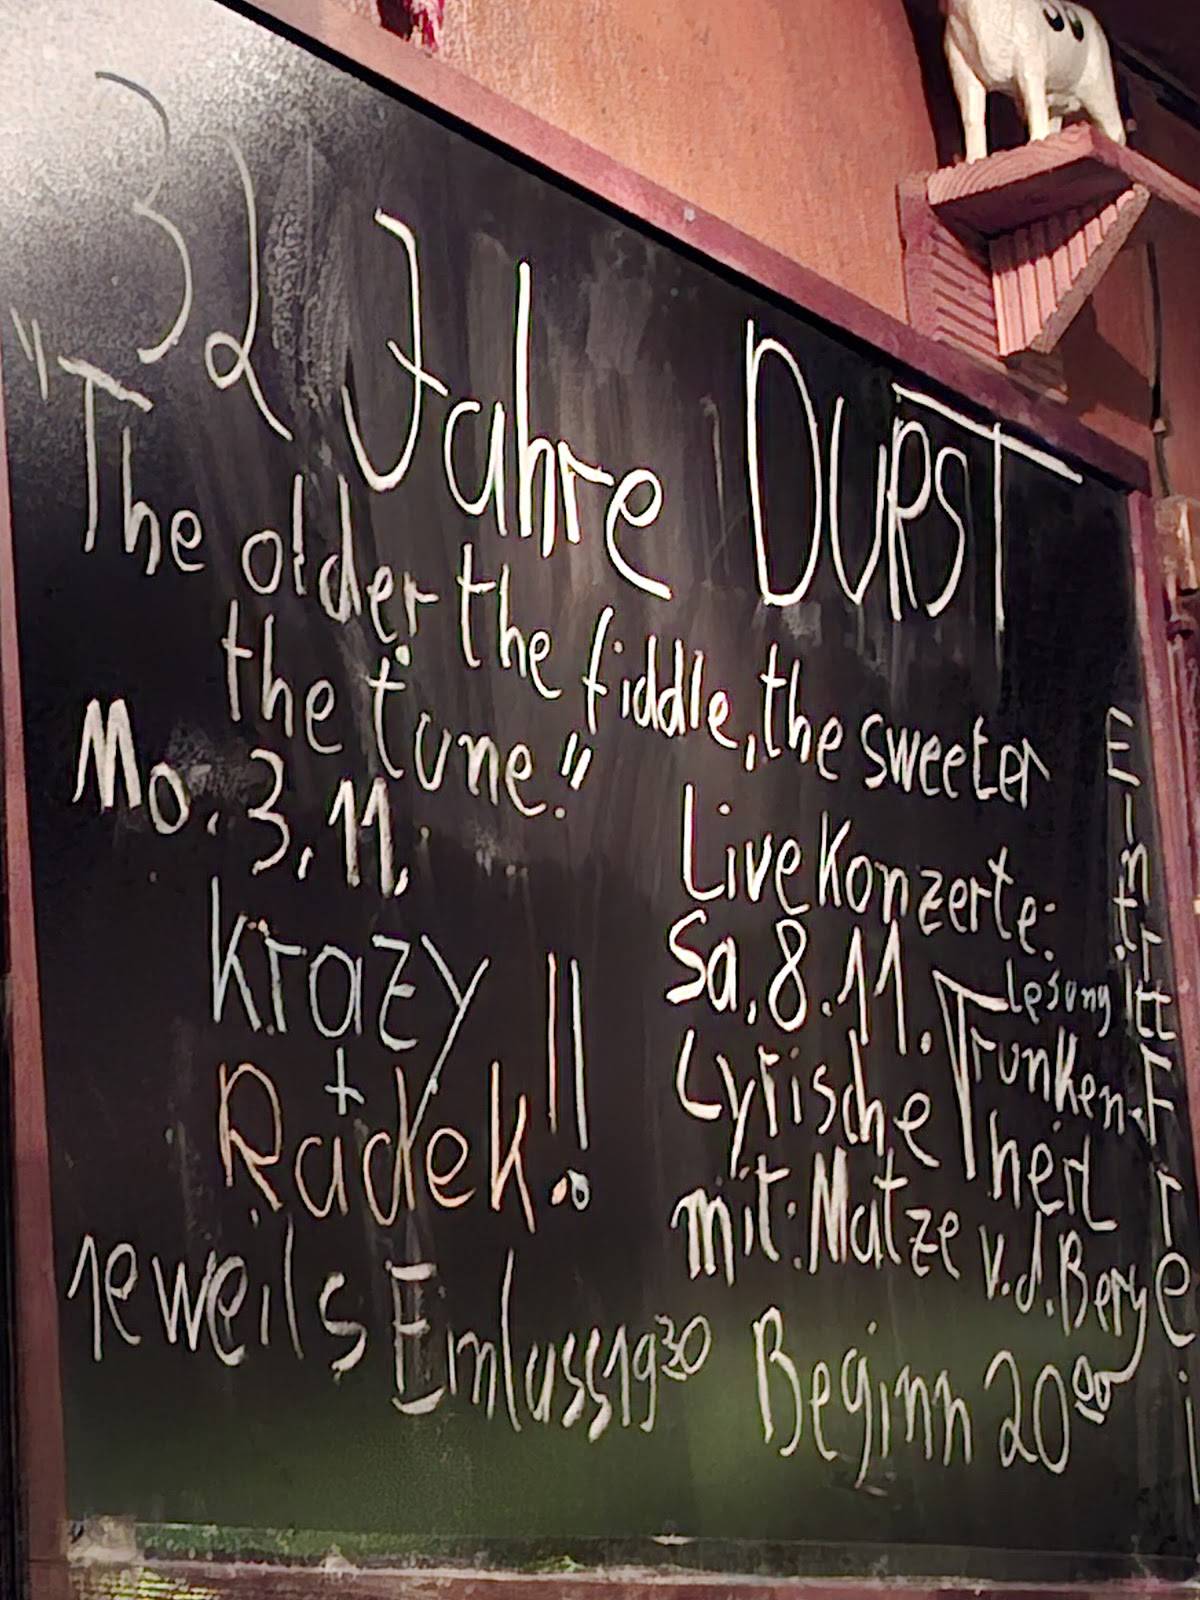 32 Jahre DURST
"The older the fiddle, the sweeter
the tune."
Mo. 3.11.
Krazy
+
Radek!!
Live Konzerte:
Sa. 8.11.
Lesung
Lyrische Trunken-
heit
mit: Matze v.d. Berge
jeweils Einlass 19³⁰ Beginn 20⁰⁰
Eintritt Frei